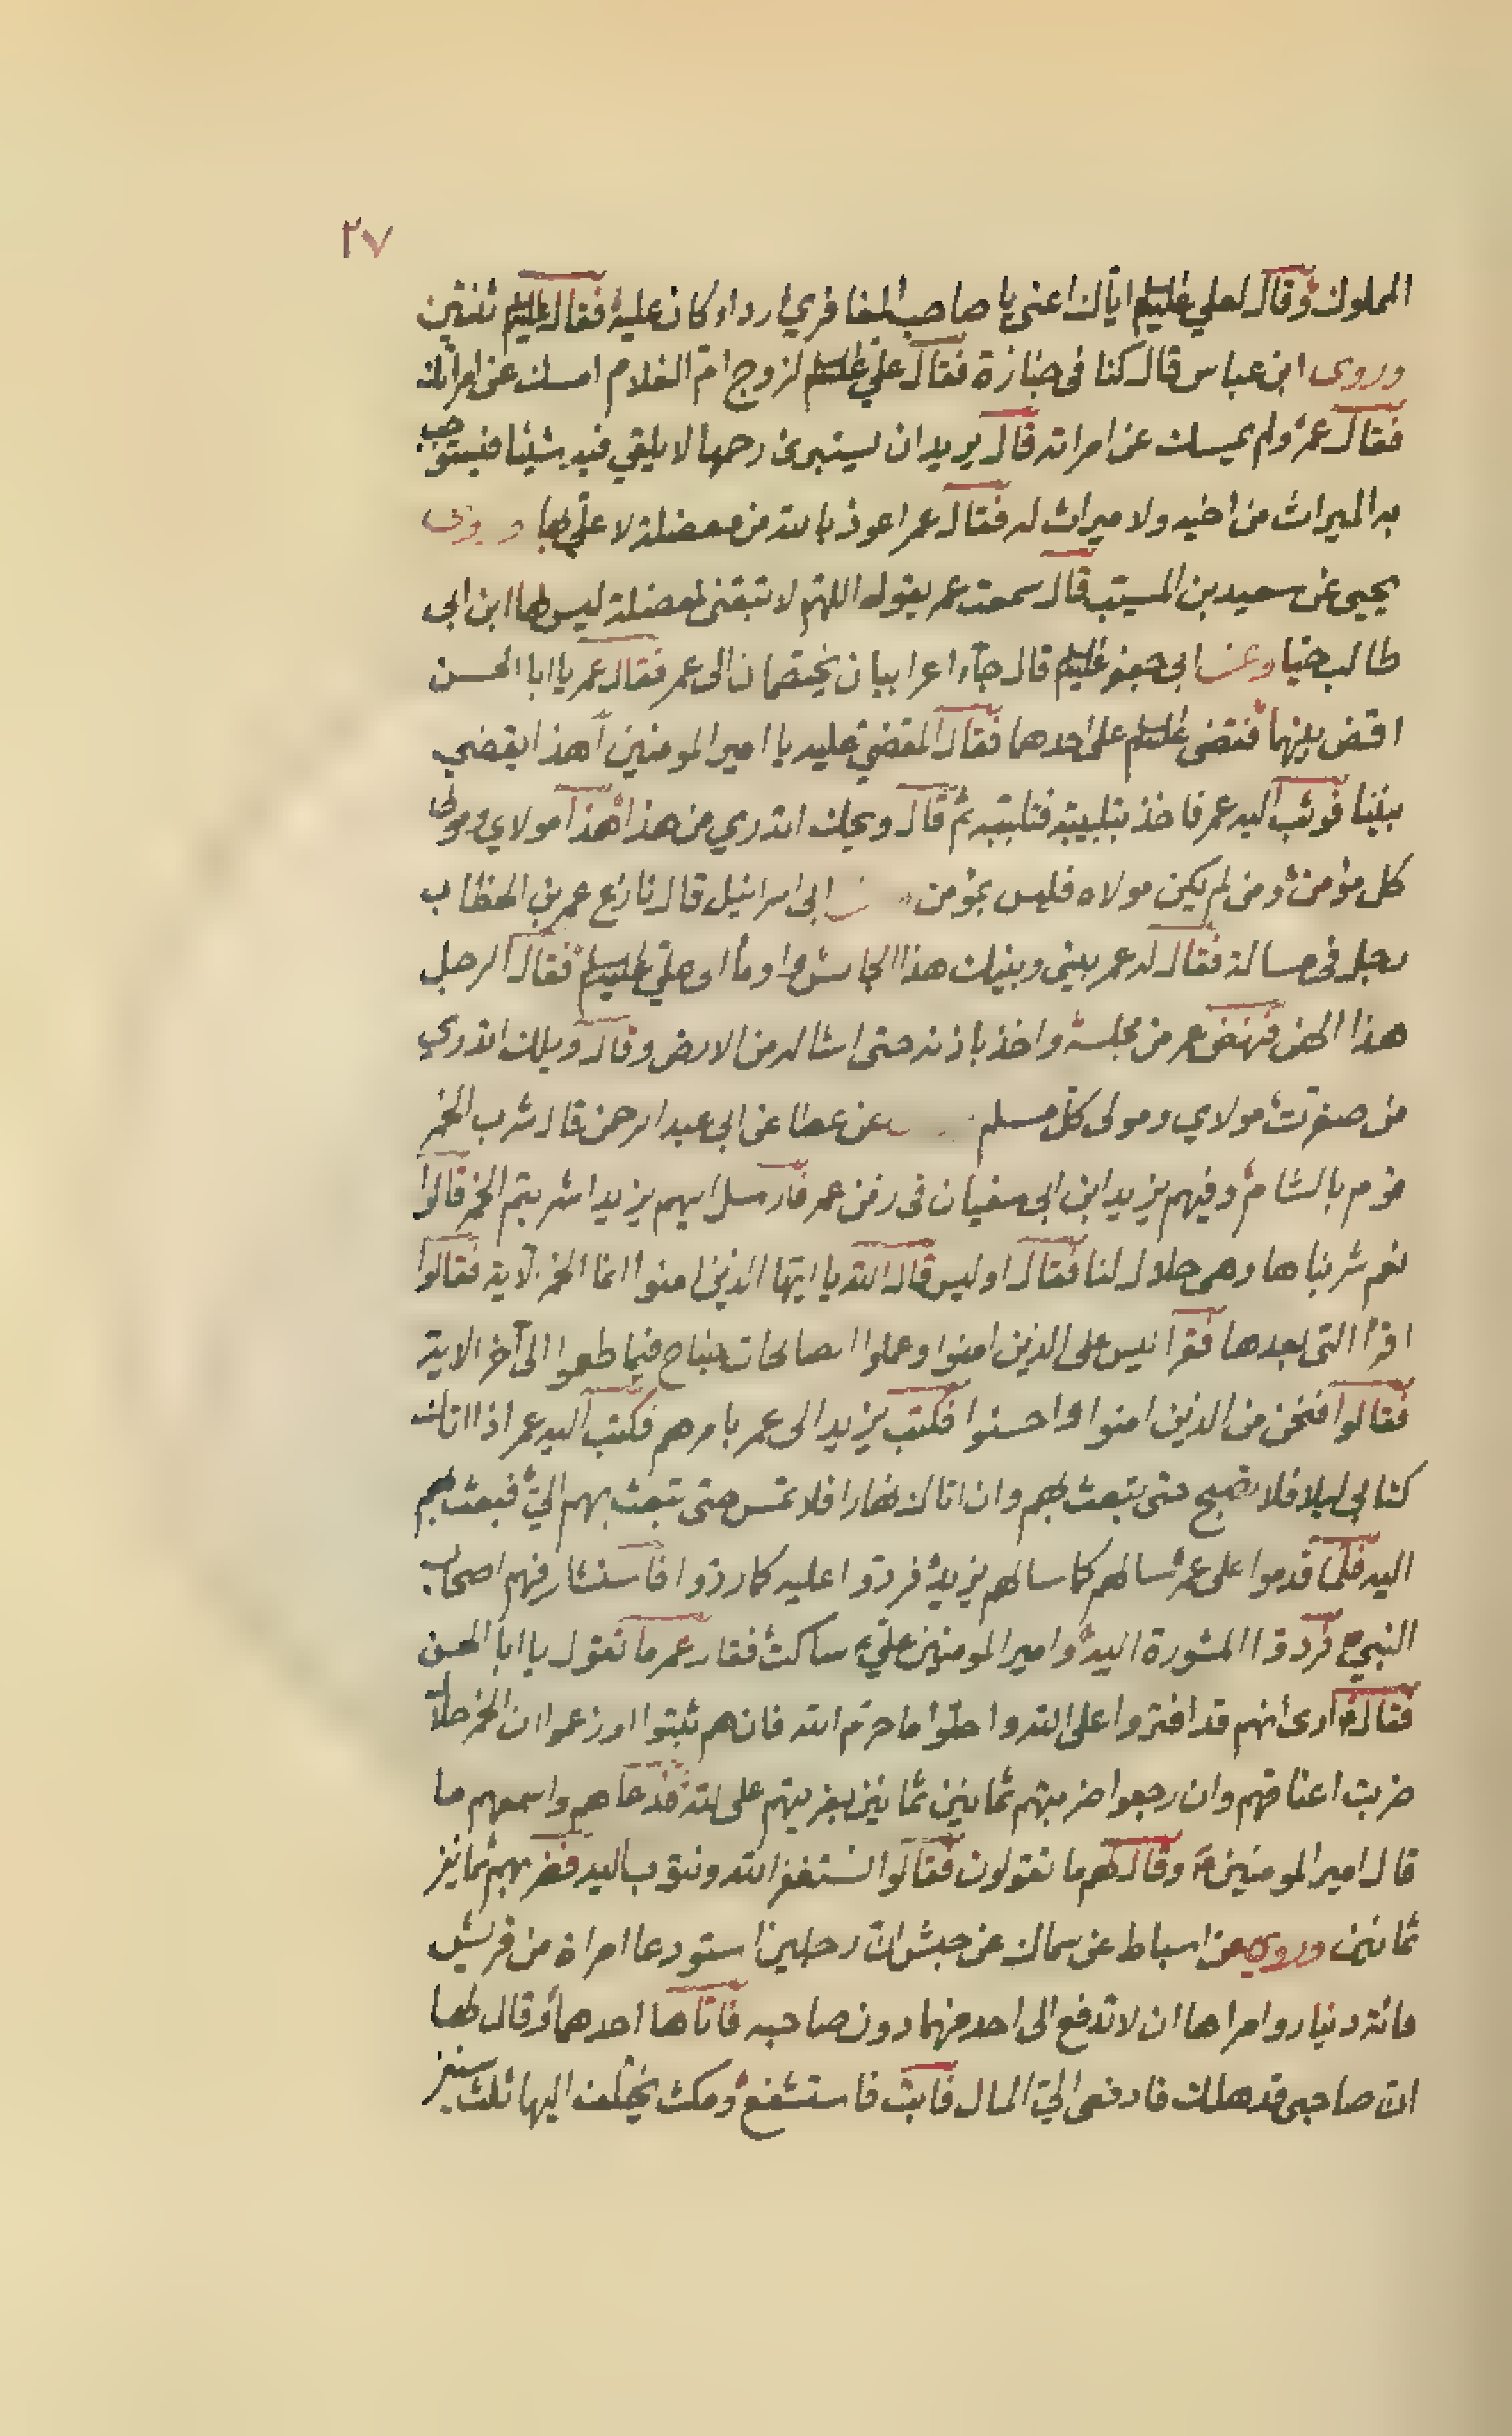 ٢٧
المملوك وقال لعلي عليه السلم اياك اعنى يا صاحب المغافري رداء كان عليه فقال عليه السلم ثنتين
وروى ابن عباس قال كنا فى جنازة فقال علي عليه السلم لزوج ام الغلام امسك عن امراتك
فقال عمر ولم يمسك عن امراته قال يريد ان يستبرئ رحمها لا يلقي فيه شيئا فيستوجب
به الميراث من اخيه ولا ميراث له فقال عمر اعوذ بالله من معضلة لا علي لها وروى
يحيى عن سعيد بن المسيب قال سمعت عمر يقول اللهم لا تبقنى لمعضلة ليس لها ابن ابى
طالب حيا وعن ابى جعفر عليه السلم قال جآء اعرابيان يختصمان الى عمر فقال عمر يا ابا الحسن
اقض بينهما فقضى عليه السلم على احدهما فقال المقضي عليه يا امير المومنين أهذا يقضي
بيننا فوثب اليه عمر فاخذ بتلبيبه فتلببه ثم قال ويحك اتدري من هذا هذا مولاي ومولى
كل مؤمن ومن لم يكن مولاه فليس بمؤمن ابى اسرائيل قال نازع عمر بن الخطاب
رجل فى مسالة فقال له عمر بينى وبينك هذا الجالس واومأ الى علي عليه السلم فقال الرجل
هذا الهن فنهض عمر من مجلسه واخذ باذنه حتى اشاله من الارض وقال ويلك اتدري
من صغرت مولاي ومولى كل مسلم عن عطا عن ابى عبد الرحمن قال شرب الخمر
قوم بالشام وفيهم يزيد ابن ابى سفيان فى زمن عمر فارسل اليهم يزيد اشربتم الخمر قالوا
نعم شربناها وهى حلال لنا فقال اوليس قال الله يا ايها الذين امنوا انما الخمر الآية فقالوا
اقرا التى بعدها فقرا ليس على الذين امنوا وعملوا الصالحات جناح فيما طعموا الى آخر الاية
فقالوا فنحن من الذين امنوا واحسنوا فكتب يزيد الى عمر بامرهم فكتب اليه عمر اذا اتاك
كتابى ليلا فلا تصبح حتى تبعث بهم وان اتاك نهارا فلا تمس حتى تبعث بهم الي فبعث بهم
اليه فلما قدموا على عمر سالهم كما سالهم يزيد فردوا عليه كما ردوا فاستشار فيهم اصحاب
النبي فردوا المشورة اليه وامير المومنين علي ساكت فقال عمر ما تقول يا ابا الحسن
فقال ارى انهم قد افتروا على الله واحلوا ما حرم الله فان هم ثبتوا وزعموا ان الخمر حلال
ضربت اعناقهم وان رجعوا ضربتهم ثمانين ثمانين بفريتهم على الله فدعاهم واسمعهم ما
قال امير المومنين وقال لهم ما تقولون فقالوا نستغفر الله ونتوب اليه فضربهم ثمانين
ثمانين وروي عن اسباط عن سماك عن حبش ان رجلين استودعا امراة من قريش
مائة دنيار وامراها ان لا تدفع الى احد منهما دون صاحبه فاتاها احدهما وقال لها
ان صاحبى قد هلك فادفعى الي المال فابت فاستشفع ومكث يختلف اليها ثلث سنين